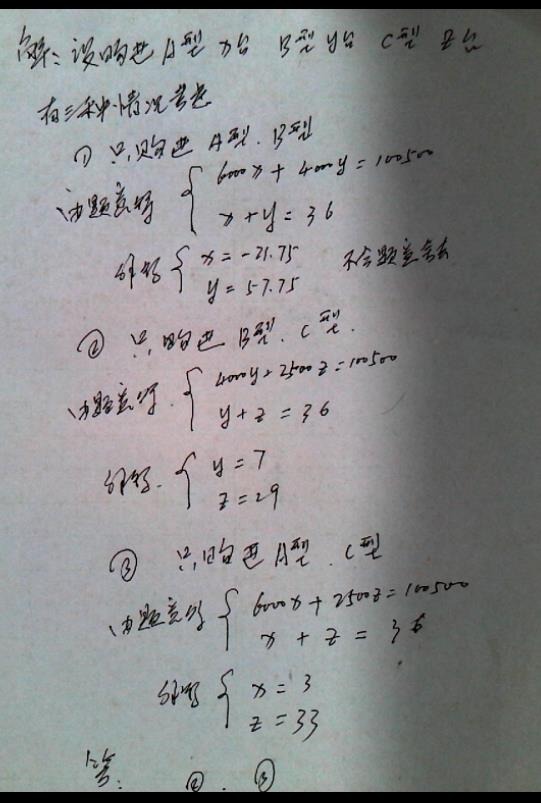 解：设购进A型x台 B型y台 C型z台
有三种情况考虑
① 只购进 A型．B型
由题意得 { 6000x + 4000y = 100500
x + y = 36
解得 { x = -21.75
y = 57.75 不合题意舍去
② 只购进 B型．C型．
由题意得． { 4000y + 2500z = 100500
y + z = 36
解得． { y = 7
z = 29
③ 只购进 A型．C型
由题意得 { 6000x + 2500z = 100500
x + z = 36
解得 { x = 3
z = 33
答． ②．③